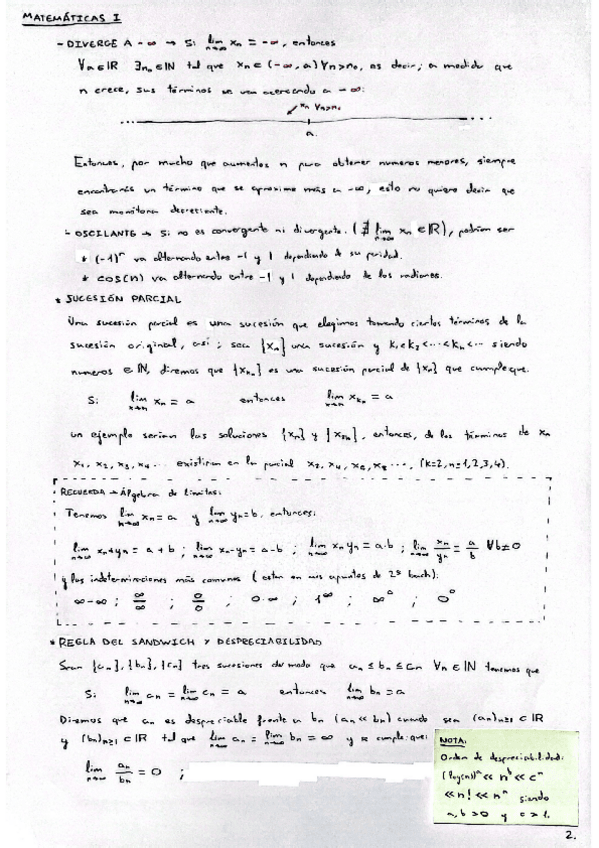 MATEMÁTICAS I
- DIVERGE A -∞ → Si lim xn = -∞, entonces
n→∞
∀a∈IR ∃n₀∈IN tal que xn ∈ (-∞, a) ∀n>n₀, es decir; a medida que
n crece, sus términos se van acercando a -∞:
xn ∀n>n₀
a.
Entonces, por mucho que aumentes n para obtener numeros menores, siempre
encontrarás un término que se aproxime más a -∞, esto no quiere decir que
sea monótona decreciente.
- OSCILANTE → Si no es convergente ni divergente. (∄ lim xn ∈ IR), podrían ser
n→∞
* (-1)ⁿ va alternando entre -1 y 1 dependiendo de su paridad.
* cos(n) va alternando entre -1 y 1 dependiendo de los radianes.
* SUCESIÓN PARCIAL
Una sucesión parcial es una sucesión que elegimos tomando ciertos términos de la
sucesión original, así; sea {xn} una sucesión y k₁<k₂<···<kn<··· siendo
numeros ∈ IN, diremos que {xkn} es una sucesión parcial de {xn} que cumple que.
Si lim xn = a entonces lim xkn = a
un ejemplo serian las soluciones {xn} y {x2n}, entonces, de los términos de xn
x₁, x₂, x₃, x₄... existirían en la parcial x₂, x₄, x₆, x₈ ···, (k=2, n=1,2,3,4).
RECUERDA → Álgebra de límites:
Tenemos lim xn = a y lim yn = b, entonces;
lim xn+yn = a + b ; lim xn-yn = a-b ; lim xn yn = a·b ; lim xn/yn = a/b ∀b≠0
y las indeterminaciones más comunes (estan en mis apuntes de 2º bach):
∞-∞ ; ∞/∞ ; 0/0 ; 0·∞ ; 1^∞ ; ∞⁰ ; 0⁰
* REGLA DEL SANDWICH Y DESPRECIABILIDAD
Sean {an}, {bn}, {cn} tres sucesiones de modo que an ≤ bn ≤ cn ∀n ∈ IN tenemos que
Si lim an = lim cn = a entonces lim bn = a
Diremos que an es despreciable frente a bn (an << bn) cuando sean (an)n≥1 ⊂ IR
y (bn)n≥1 ⊂ IR tal que lim an = lim bn = ∞ y se cumple que:
lim an/bn = 0 ;
NOTA:
Orden de despreciabilidad:
(log(n))ᵃ << nᵇ << cⁿ
<< n! << nⁿ siendo
a, b > 0 y c > 1.
2.